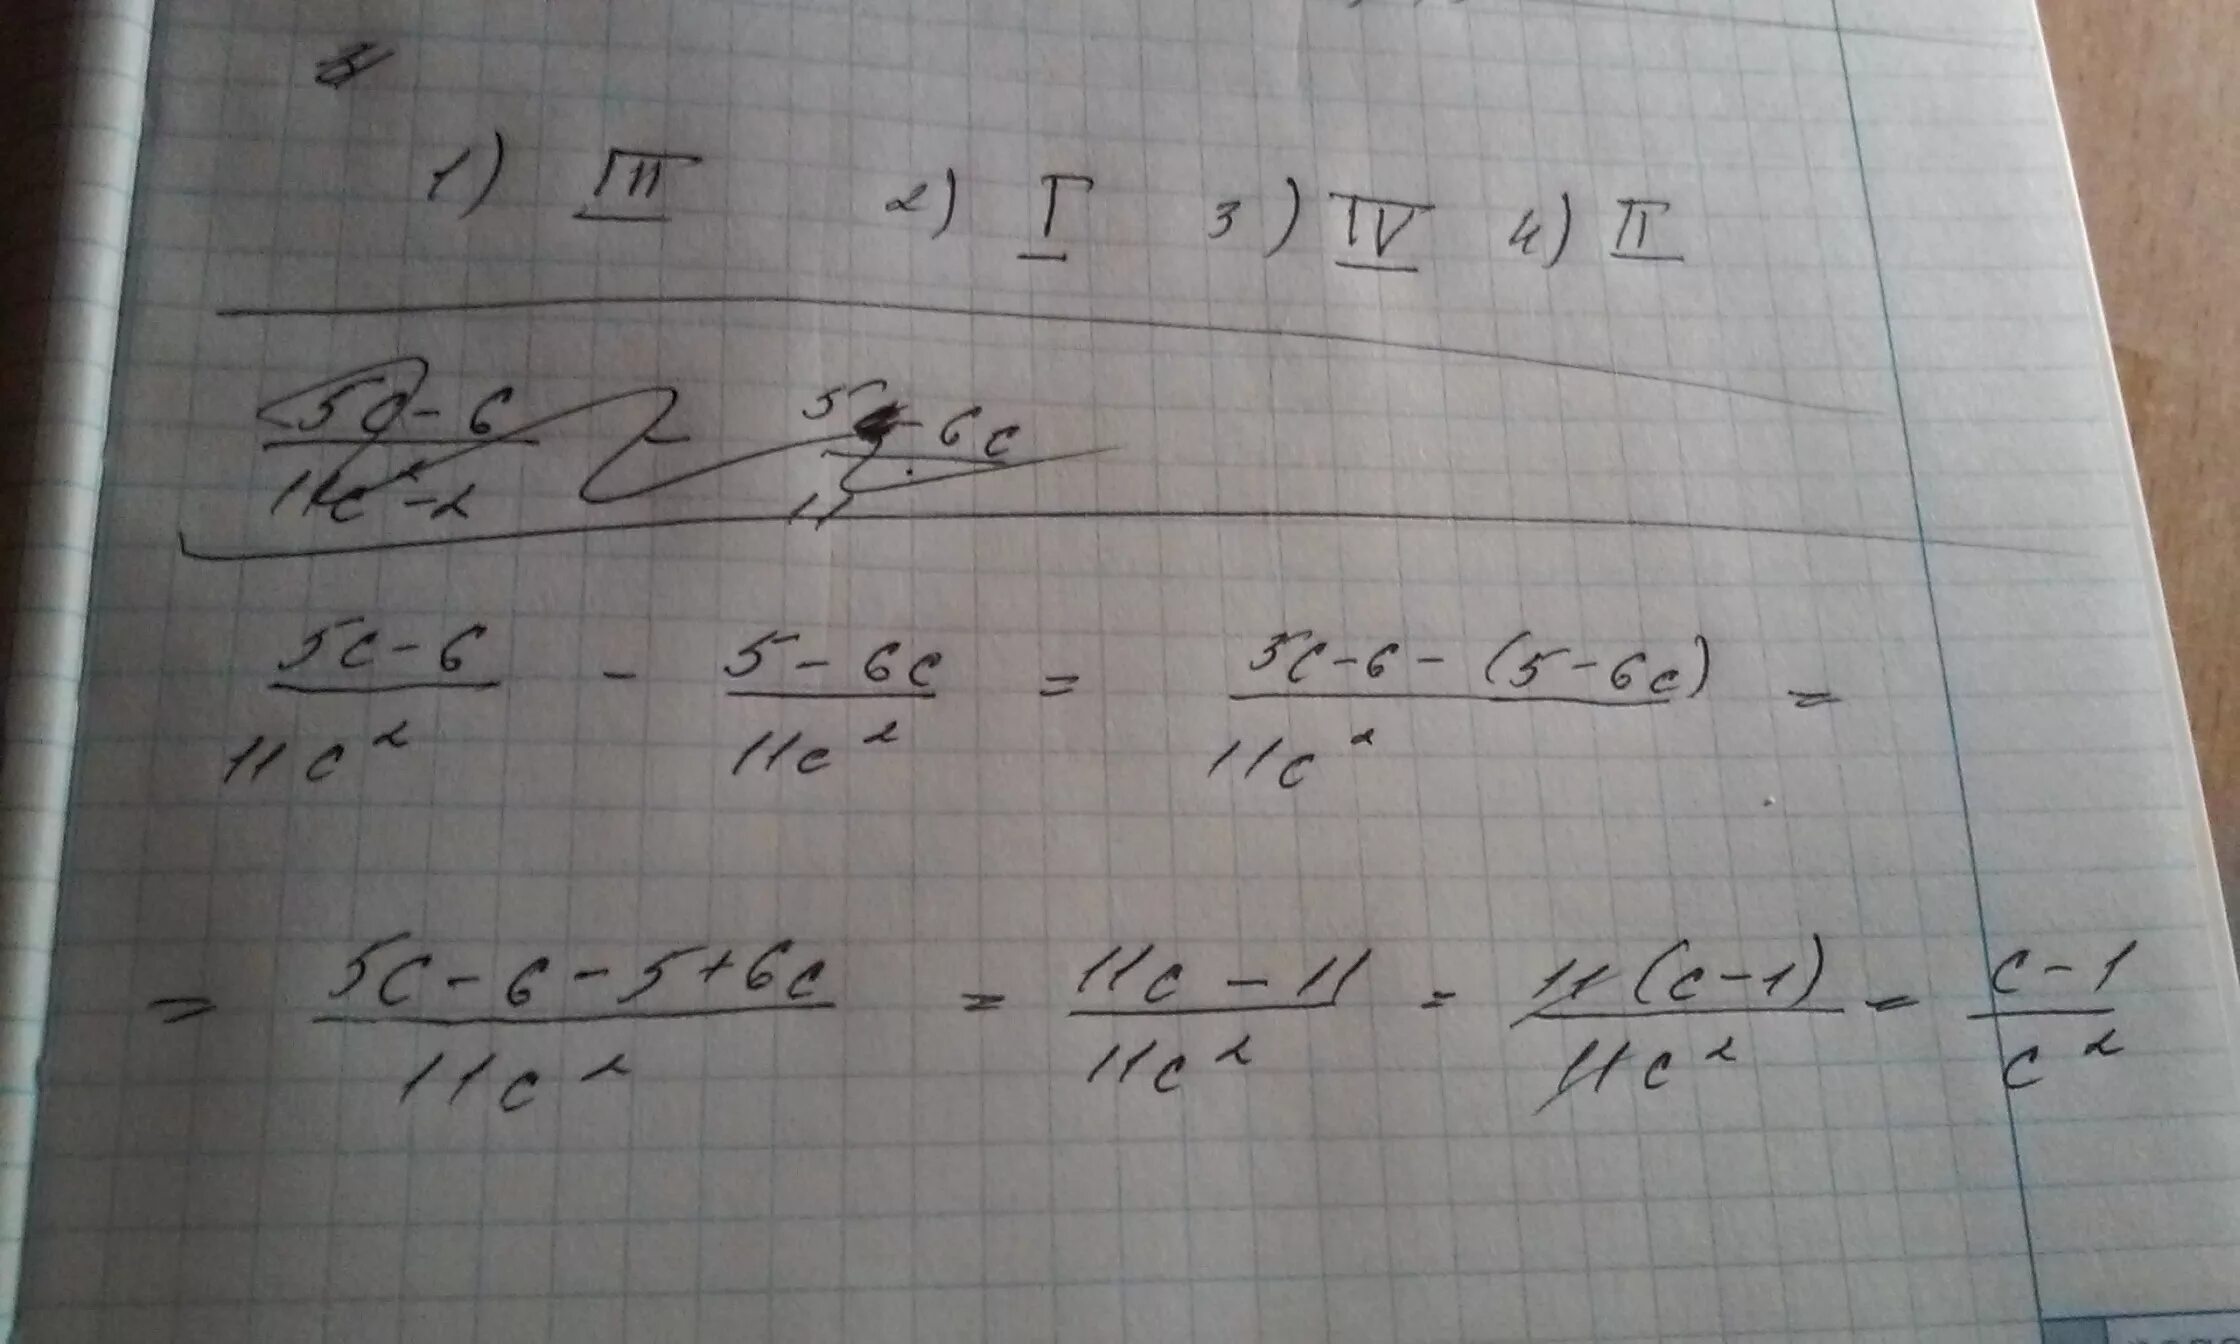 1) III 2) I 3) IV 4) II
5c-6 / 11c²-2 5 - 6c / 11
5c-6 / 11c² - 5-6c / 11c² = 5c-6-(5-6c) / 11c² =
= 5c-6-5+6c / 11c² = 11c-11 / 11c² = 11(c-1) / 11c² = c-1 / c²